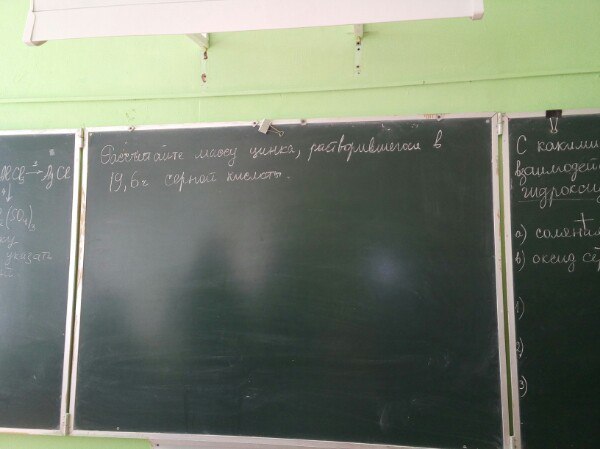 AlCl₃ → AgCl
(SO₄)₃
указать
Рассчитайте массу цинка, растворившегося в
19,6 г серной кислоты.
С какими
взаимодей
гидрокси
а) соляная
в) оксид се
1)
2)
3)